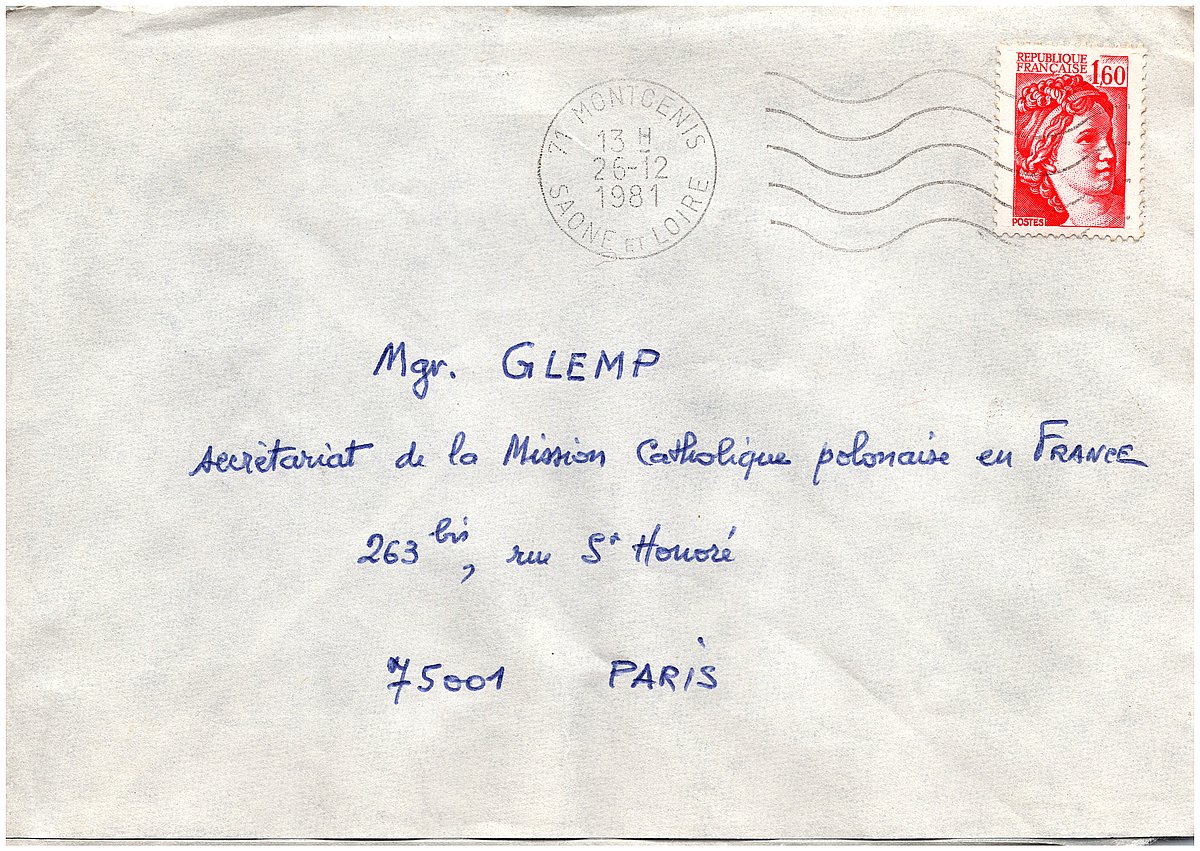 REPUBLIQUE
FRANÇAISE 1,60
POSTES
71 MONTCENIS
13 H
26-12
1981
SAONE ET LOIRE
Mgr. GLEMP
secrétariat de la Mission Catholique polonaise en FRANCE
263 bis, rue St Honoré
75001 PARIS